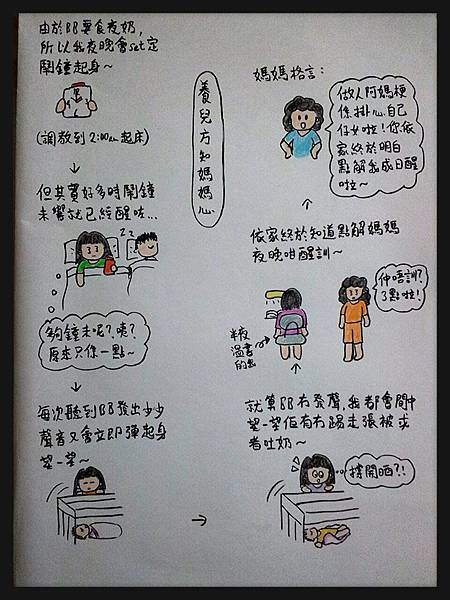 養兒方知媽媽心
由於BB要食夜奶,
所以我夜晚會set定
鬧鐘起身~
(調教到2:00am起床)
但其實好多時鬧鐘
未響就已經醒咗...
zz
夠鐘未呢?咦?
原來只係一點~
每次聽到BB發出少少
聲音又會立即彈起身
望一望~
就算BB冇發聲,我都會間中
望一望佢有冇踢走張被或
者吐奶~
擔開晒?!
依家終於知道點解媽媽
夜晚咁醒訓~
半夜
溫書
的我
仲唔訓?
3點啦!
媽媽格言:
做人阿媽梗
係掛心自己
仔女啦!你依
家終於明白
點解我成日醒
啦~